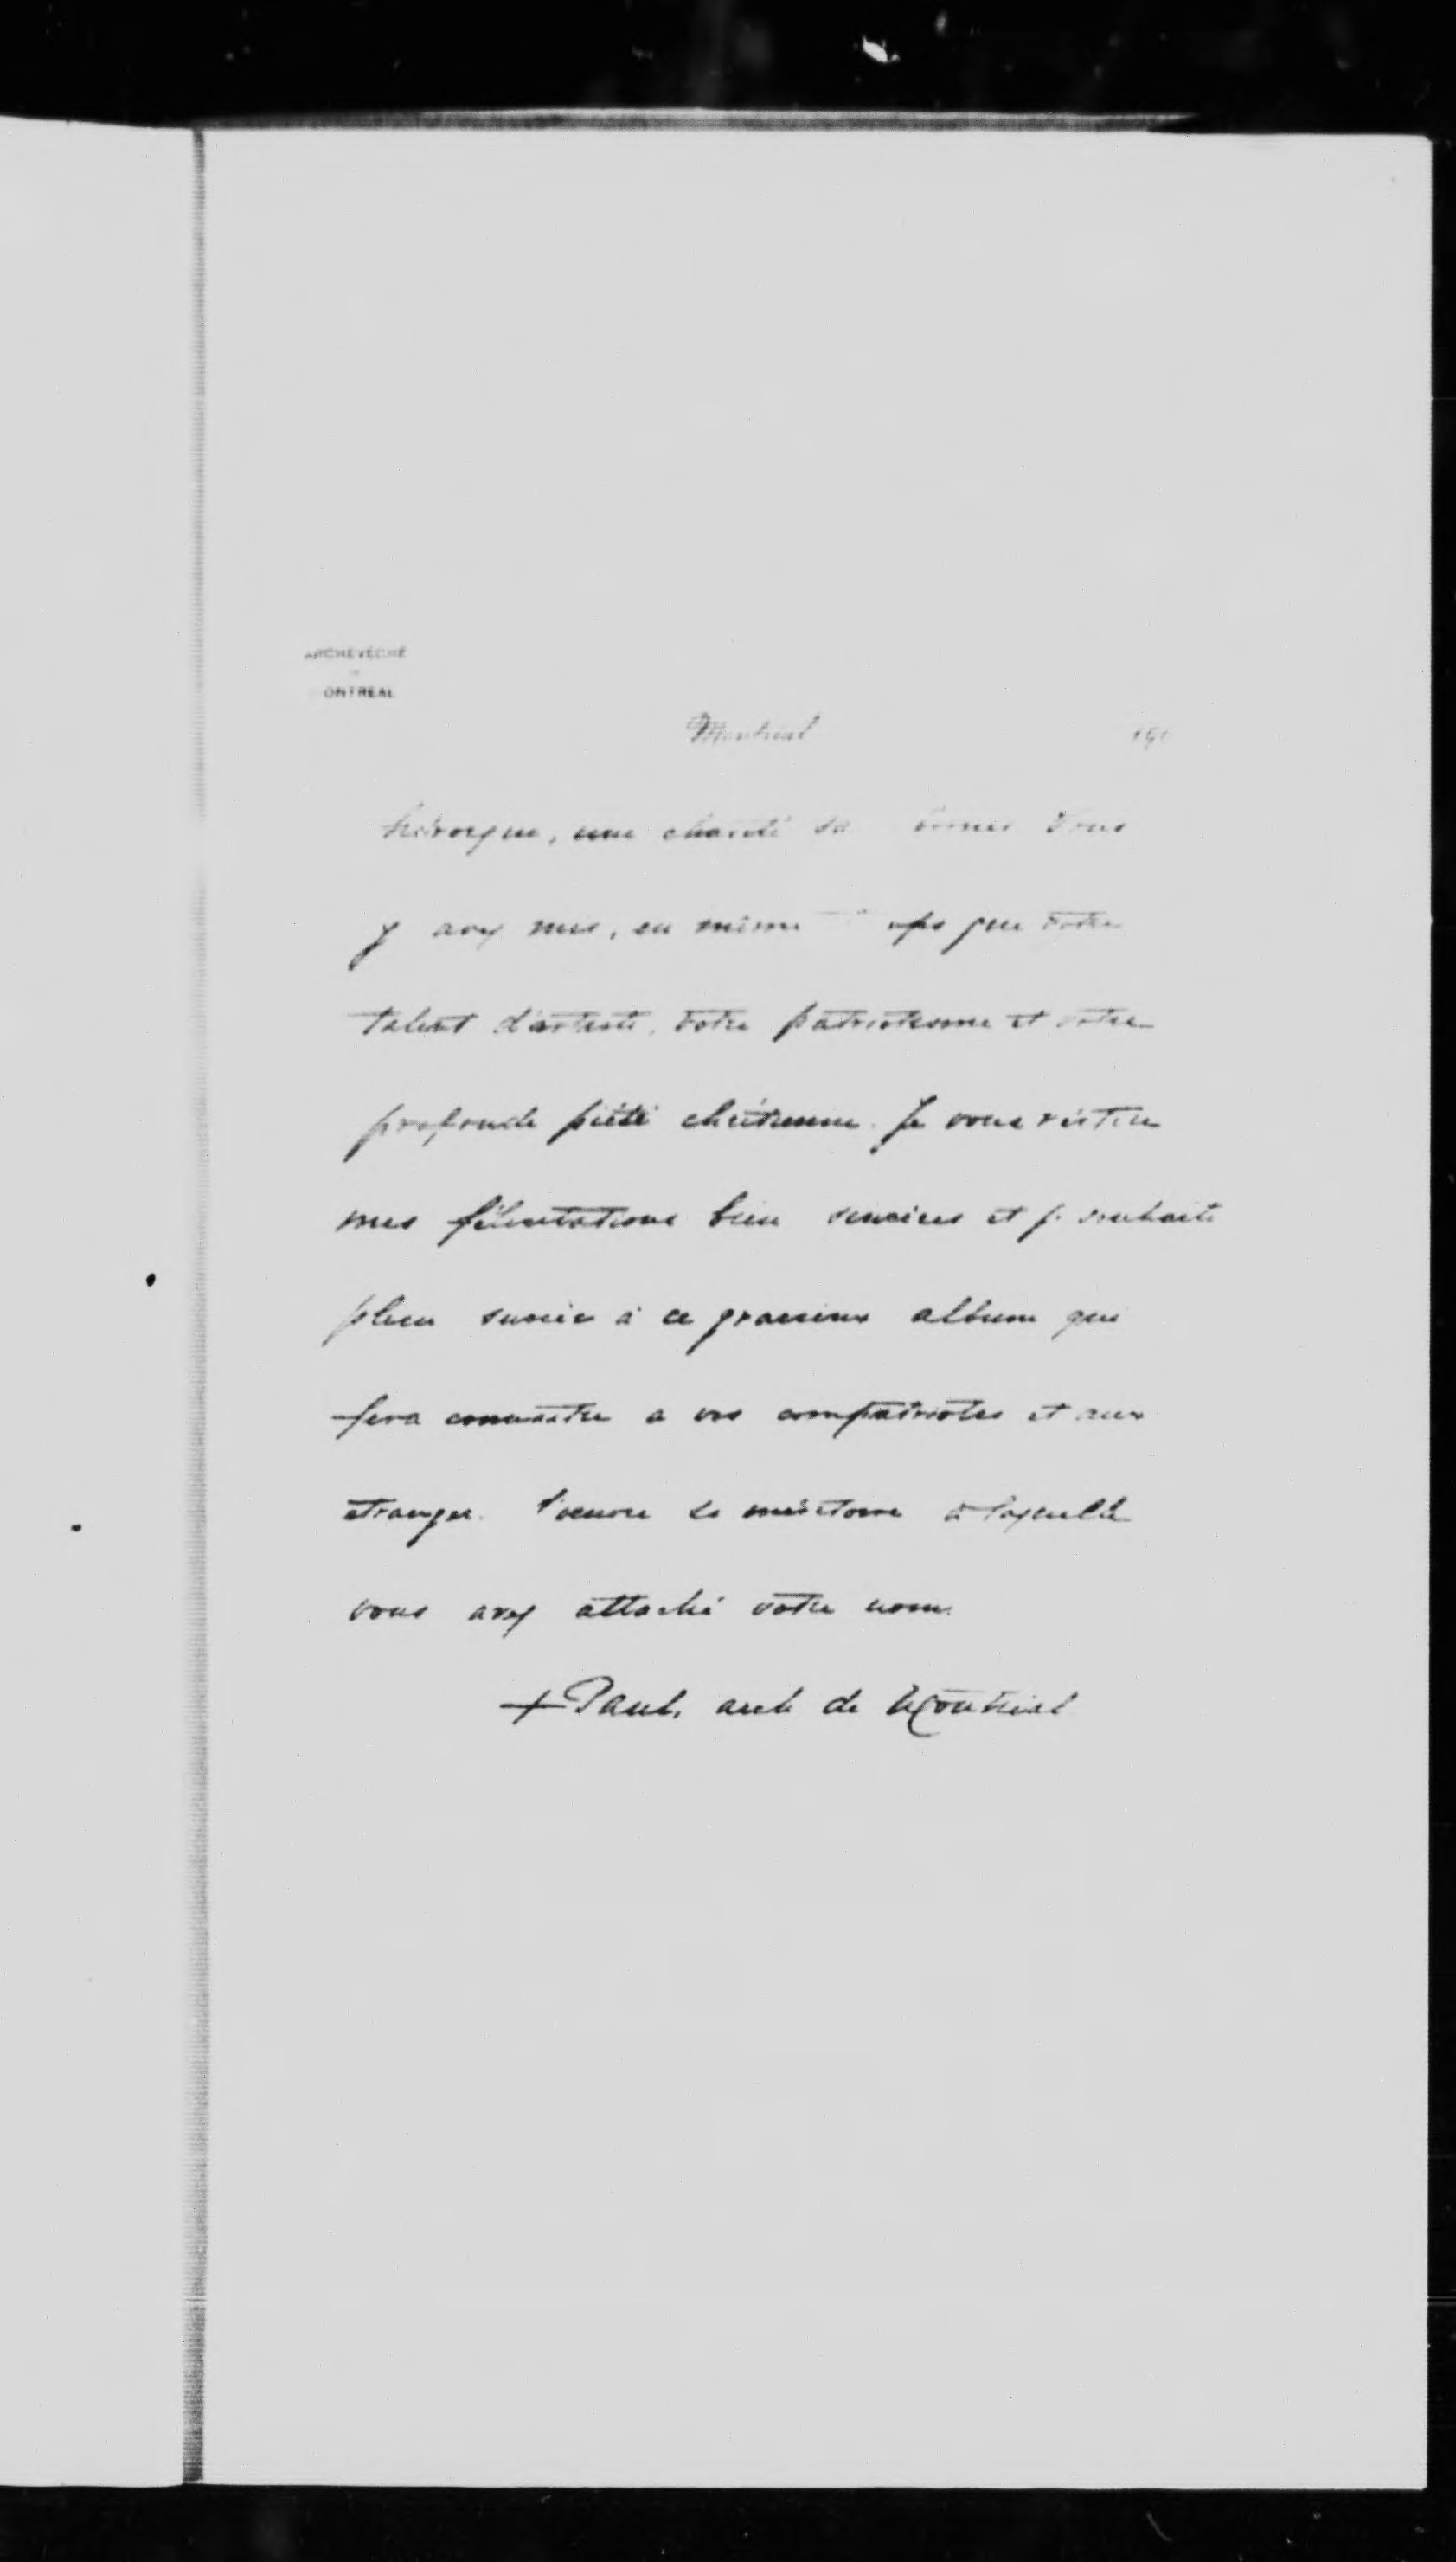 ARCHEVÊCHÉ
ONTREAL
Montréal 191
héroïque, une charité sa ornes Vous
y avez mis, en même mps que votre
talent d'artiste, votre patriotisme et votre
profonde piété chrétienne. Je vous réitère
mes félicitations bien sincères et je souhaite
plein succès à ce gracieux album qui
fera connaître a vos compatriotes et aux
étrangers l'œuvre si méritoire à laquelle
vous avez attaché votre nom.
+ Paul, arch de Montréal